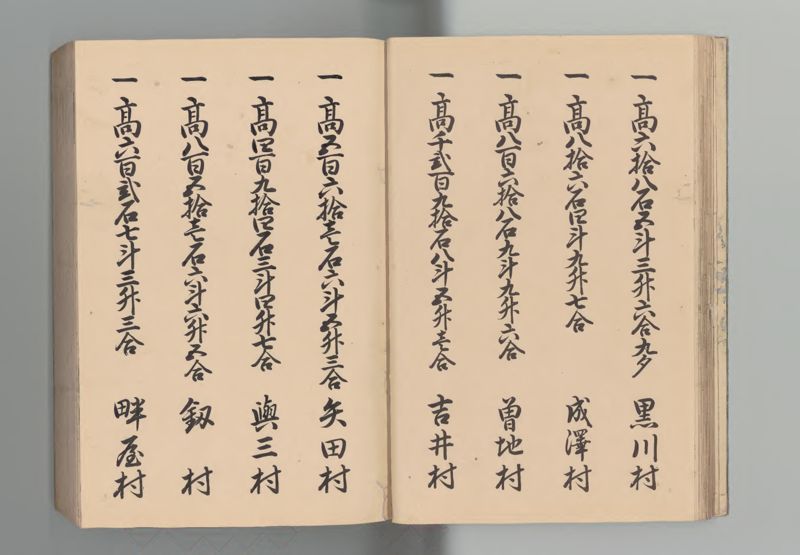 一 高六拾八石五斗三升六合九夕 黒川村
一 高八拾六石四斗九升七合 成澤村
一 高八百六拾八石九斗九升六合 曽地村
一 高千弐百九拾石八斗五升壱合 吉井村
一 高五百六拾壱石六斗五升三合 矢田村
一 高四百九拾四石三斗四升七合 與三村
一 高八百五拾壱石六斗六升五合 釼村
一 高六百弐石七斗三升三合 畔屋村